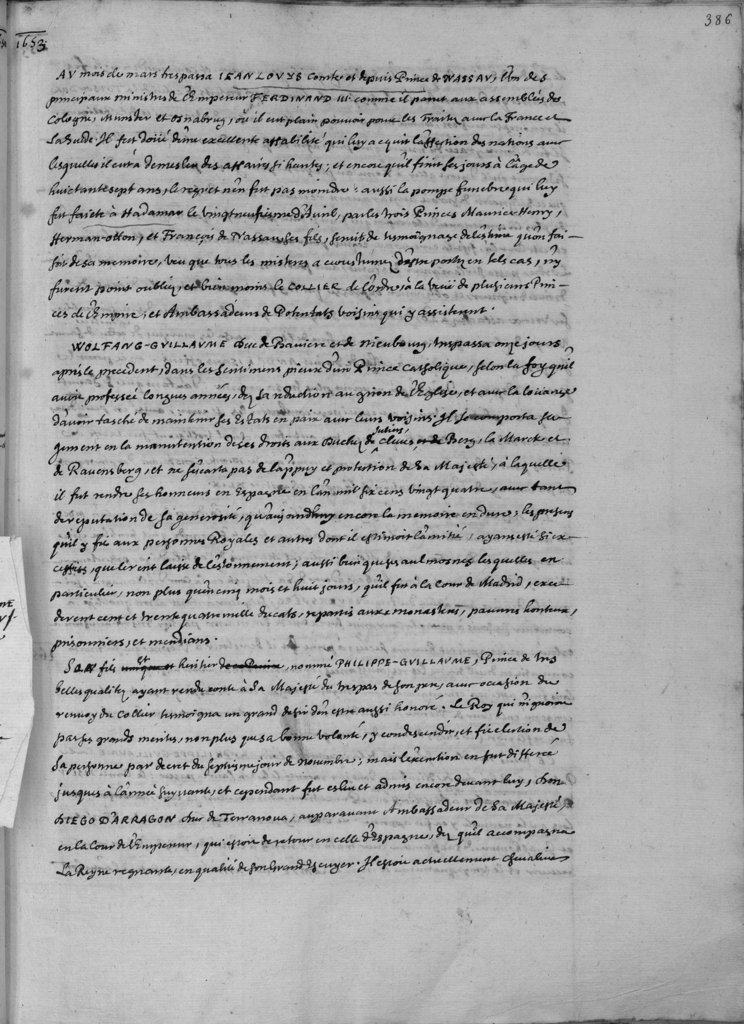 386
1653
AV mois de mars trespassa IEAN LOVYS Comte, et depuis Prince de NASSAV, l'un des
principaux ministres de l'Empereur FERDINAND III comme il parut aux assemblées de
Cologne, Munster et Osnabrug, où il eut plain pouvoir pour les Traitez avec la France et
la Suede. Il fut doüé d'une excellente affabilité qui luy acquit l'affection des nations avec
lesquelles il eut a demesler des affaires si hautes; et encore qu'il finit ses jours à l'âge de
huictante sept ans, le regret n'en fut pas moindre: aussi la pompe funebre qui luy
fut faicte à Hadamar le vingt neufiesme d'Avril, par les trois Princes Maurice-Henry,
Herman-otton, et François de Nassau, ses fils, servit de tesmoignage de l'estime qu'on fai-
soit de sa memoire, veu que tous les misteres accoustumez en tels cas, n'y
furent point oubliez, et bien moins le COLLIER de l'ordre, à la veüe de plusieurs Prin-
ces de l'Empire, et Ambassadeurs de Potentats voisins qui y assisterent.
WOLFANG-GUILLAUME Duc de Baviere et de Nieubourg, trespassa onze jours
apres le precedent, dans les sentimens pieux d'un Prince Catholique, selon la foy qu'il
avoit professée longues années, dez sa reduction au giron de l'Eglise, et avec la loüange
d'avoir tasché de maintenir ses Estats en paix avec leurs voisins. Il se comporta sa-
gement en la manutention de ses droits aux Duchez de Juliers, Cleves, et de Berg, la Marck et
de Ravensberg, et ne s'escarta pas de l'appuy et protection de Sa Majesté, à laquelle
il fut rendre ses honneurs en Espagne en l'an mil six cens vingt quatre, avec tant
de reputation de sa generosité, qu'aujourdhuy encore la memoire en dure; les presens
qu'il y fit aux personnes Royales et autres dont il estimoit l'amitié, ayans esté si ex-
cessifs, que lirent laisse de l'estonnement; aussi bien que ses aulmosnes lesquelles en
particulier, non plus qu'en cinq mois et huit jours, qu'il fut à la Cour de Madrid, exce-
derent cent et trente quatre mille ducats, repartis aux monasteres, pauvres honteux,
prisonniers, et mendians.
Son fils unique et heritier, nommé PHILIPPE-GUILLAUME, Prince de tres
belles qualitez ayant rendu conte à Sa Majesté du trespas de son pere, avec occasion du
renvoy du Collier tesmoigna un grand desir d'en estre aussi honoré. Le Roy qui n'ignoroit
pas ses grands merites, non plus que sa bonne volonté, y condescendit, et fit election de
sa personne par decret du septiesme jour de novembre; mais l'execution en fut differée
jusques à l'année suyvante, et cependant fut esleu et admis encore devant luy, Don
DIEGO D'ARRAGON duc de Terranova, auparavant Ambassadeur de Sa Majesté
en la Cour de l'Empereur, qui estoit de retour en celle d'Espagne, dez qu'il accompagna
la Reyne regnante, en qualité de son Grand Escuyer. Il estoit actuellement Chevalier